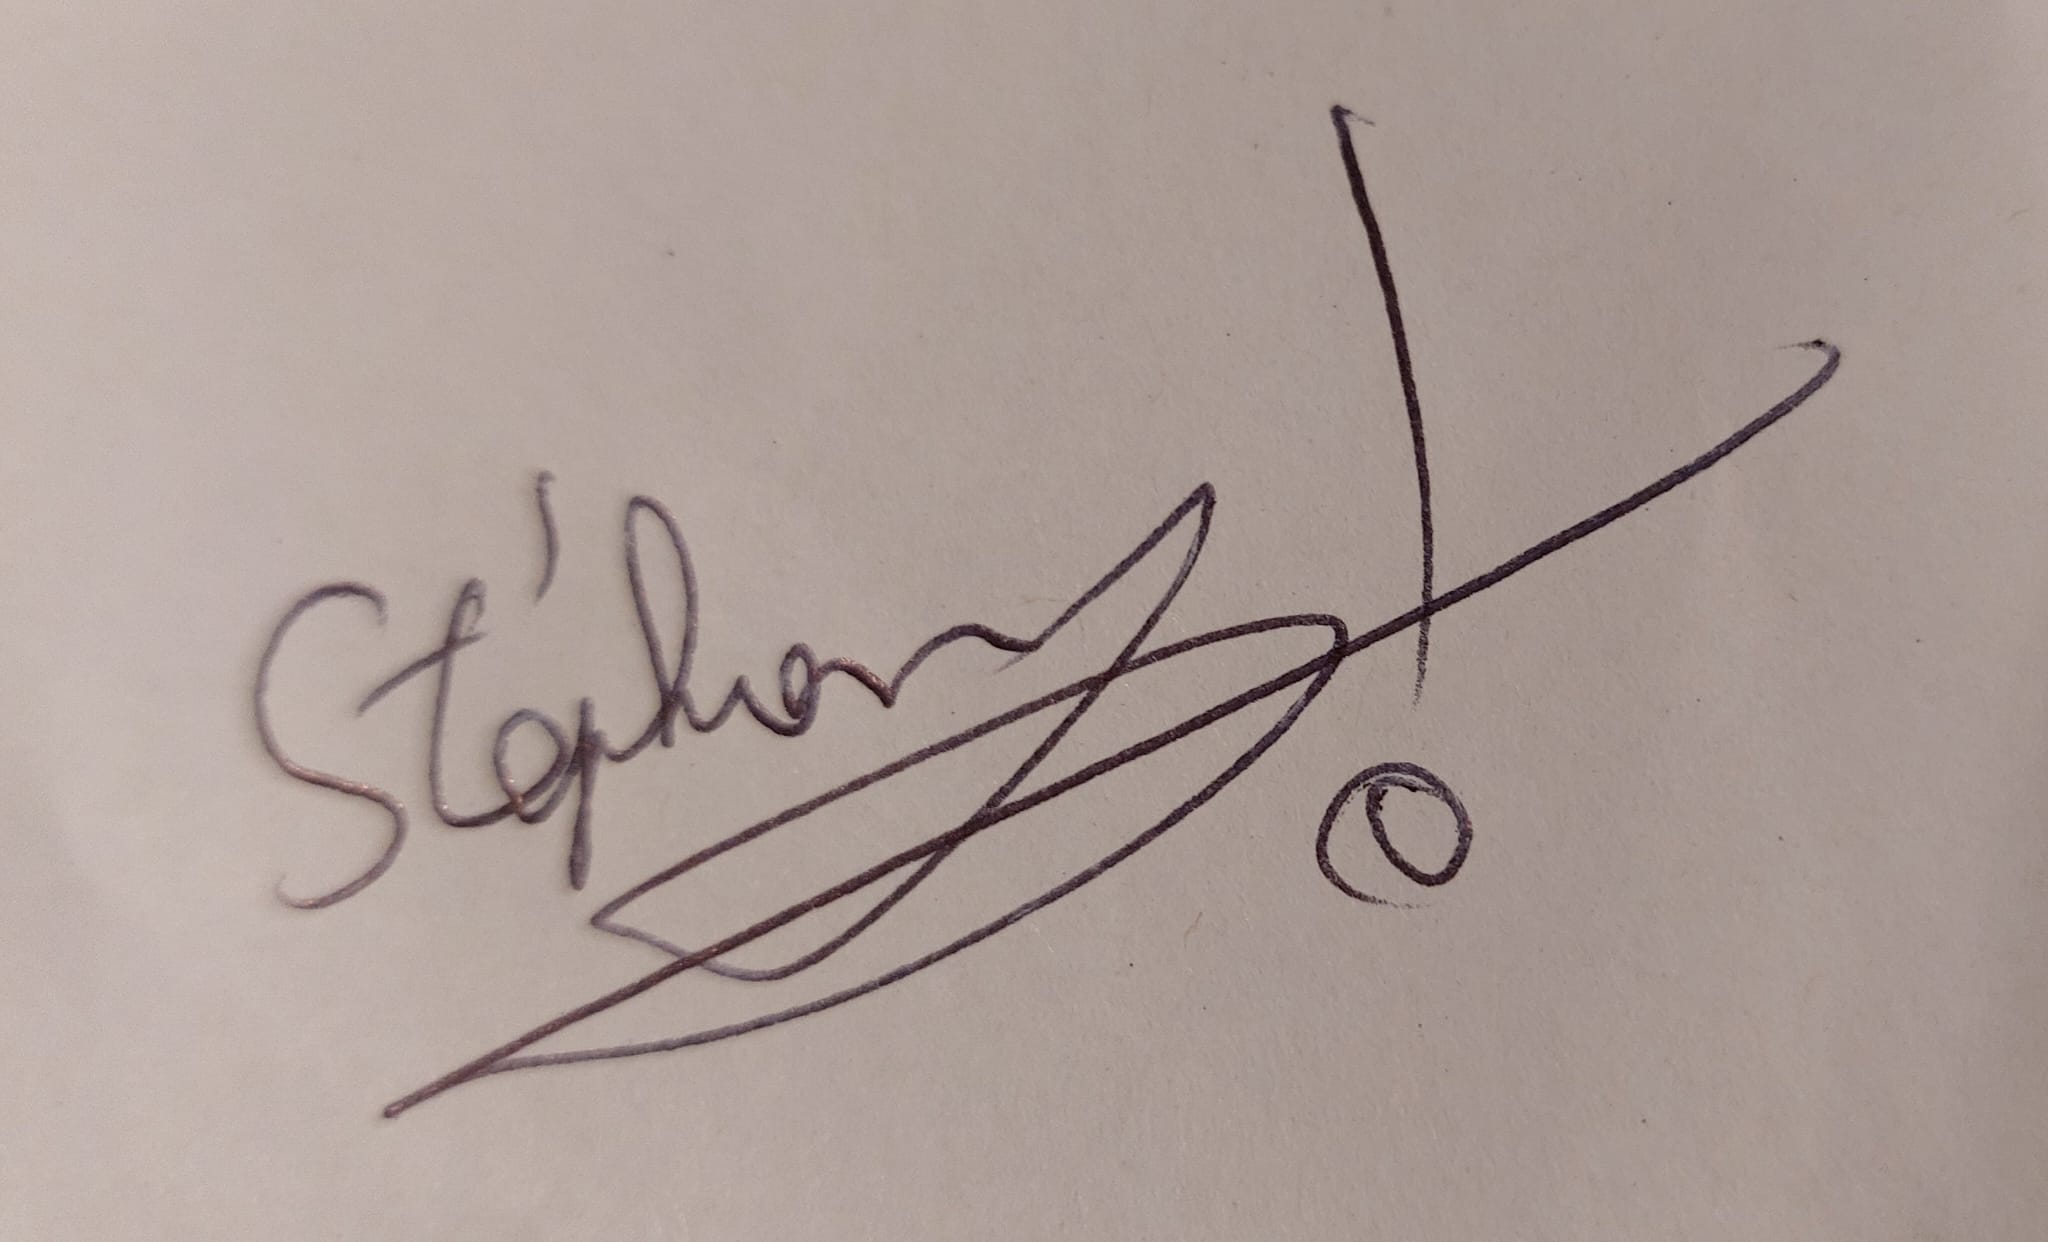 Stéphany